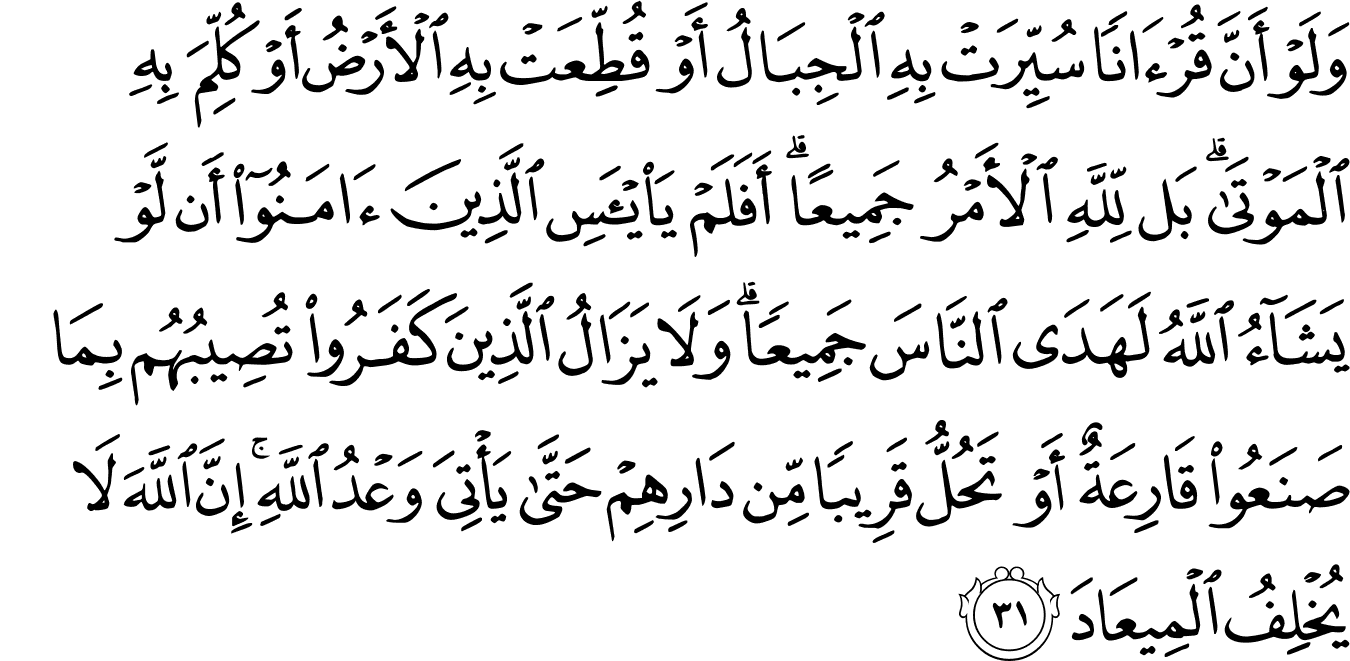 وَلَوۡ أَنَّ قُرۡءَانٗا سُيِّرَتۡ بِهِ ٱلۡجِبَالُ أَوۡ قُطِّعَتۡ بِهِ ٱلۡأَرۡضُ أَوۡ كُلِّمَ بِهِ
ٱلۡمَوۡتَىٰۗ بَل لِّلَّهِ ٱلۡأَمۡرُ جَمِيعًاۗ أَفَلَمۡ يَاْيۡـَٔسِ ٱلَّذِينَ ءَامَنُوٓاْ أَن لَّوۡ
يَشَآءُ ٱللَّهُ لَهَدَى ٱلنَّاسَ جَمِيعٗاۗ وَلَا يَزَالُ ٱلَّذِينَ كَفَرُواْ تُصِيبُهُم بِمَا
صَنَعُواْ قَارِعَةٌ أَوۡ تَحُلُّ قَرِيبٗا مِّن دَارِهِمۡ حَتَّىٰ يَأۡتِيَ وَعۡدُ ٱللَّهِۚ إِنَّ ٱللَّهَ لَا
يُخۡلِفُ ٱلۡمِيعَادَ ٣١